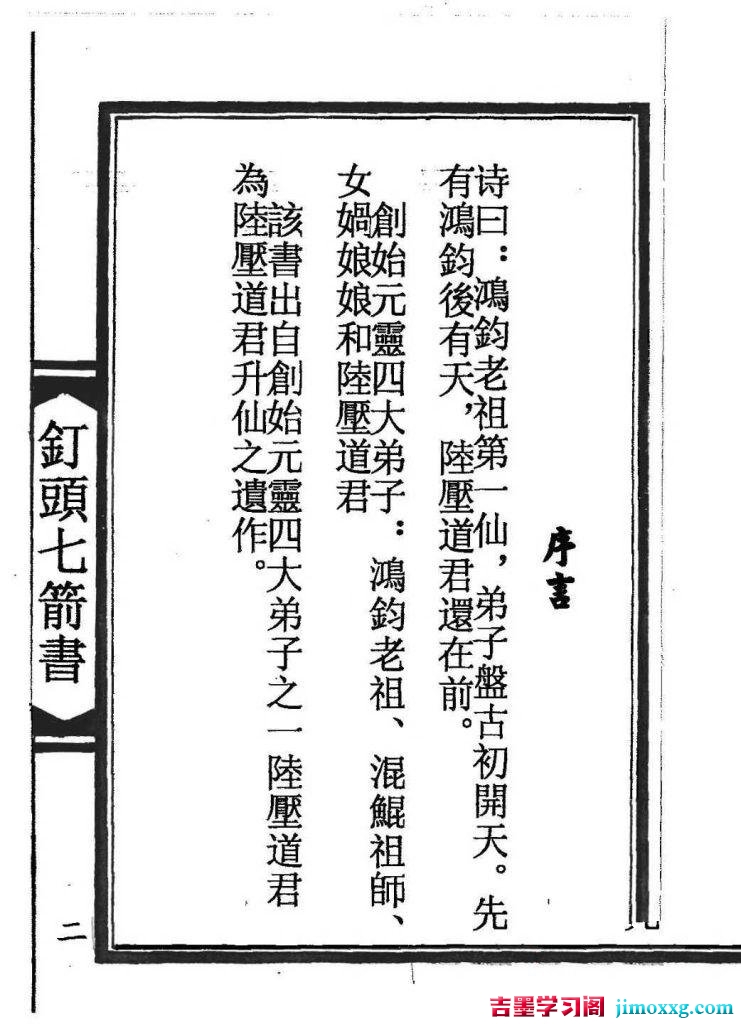 序言
诗曰：鴻鈞老祖第一仙，弟子盤古初開天。先
有鴻鈞後有天，陸壓道君還在前。
創始元靈四大弟子：鴻鈞老祖、混鯤祖師、
女媧娘娘和陸壓道君
該書出自創始元靈四大弟子之一陸壓道君
為陸壓道君升仙之遺作。
釘頭七箭書
二
吉墨学习阁 jimoxxg.com